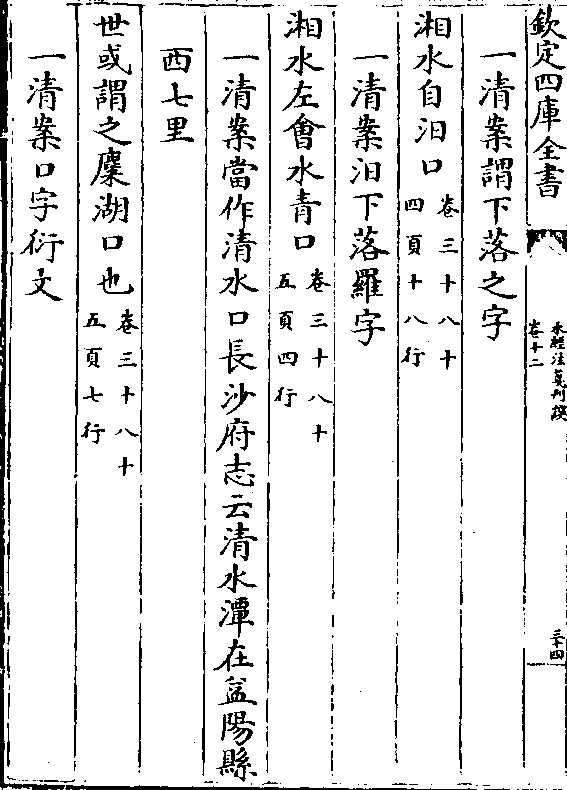 欽定四庫全書
水經注箋刊誤
卷十二
三十四
一清案謂下落之字
湘水自汨口卷三十八十
四頁十八行
一清案汨下落羅字
湘水左會水青口卷三十八十
五頁四行
一清案當作清水口長沙府志云清水潭在益陽縣
西七里
世或謂之麋湖口也卷三十八十
五頁七行
一清案口字衍文